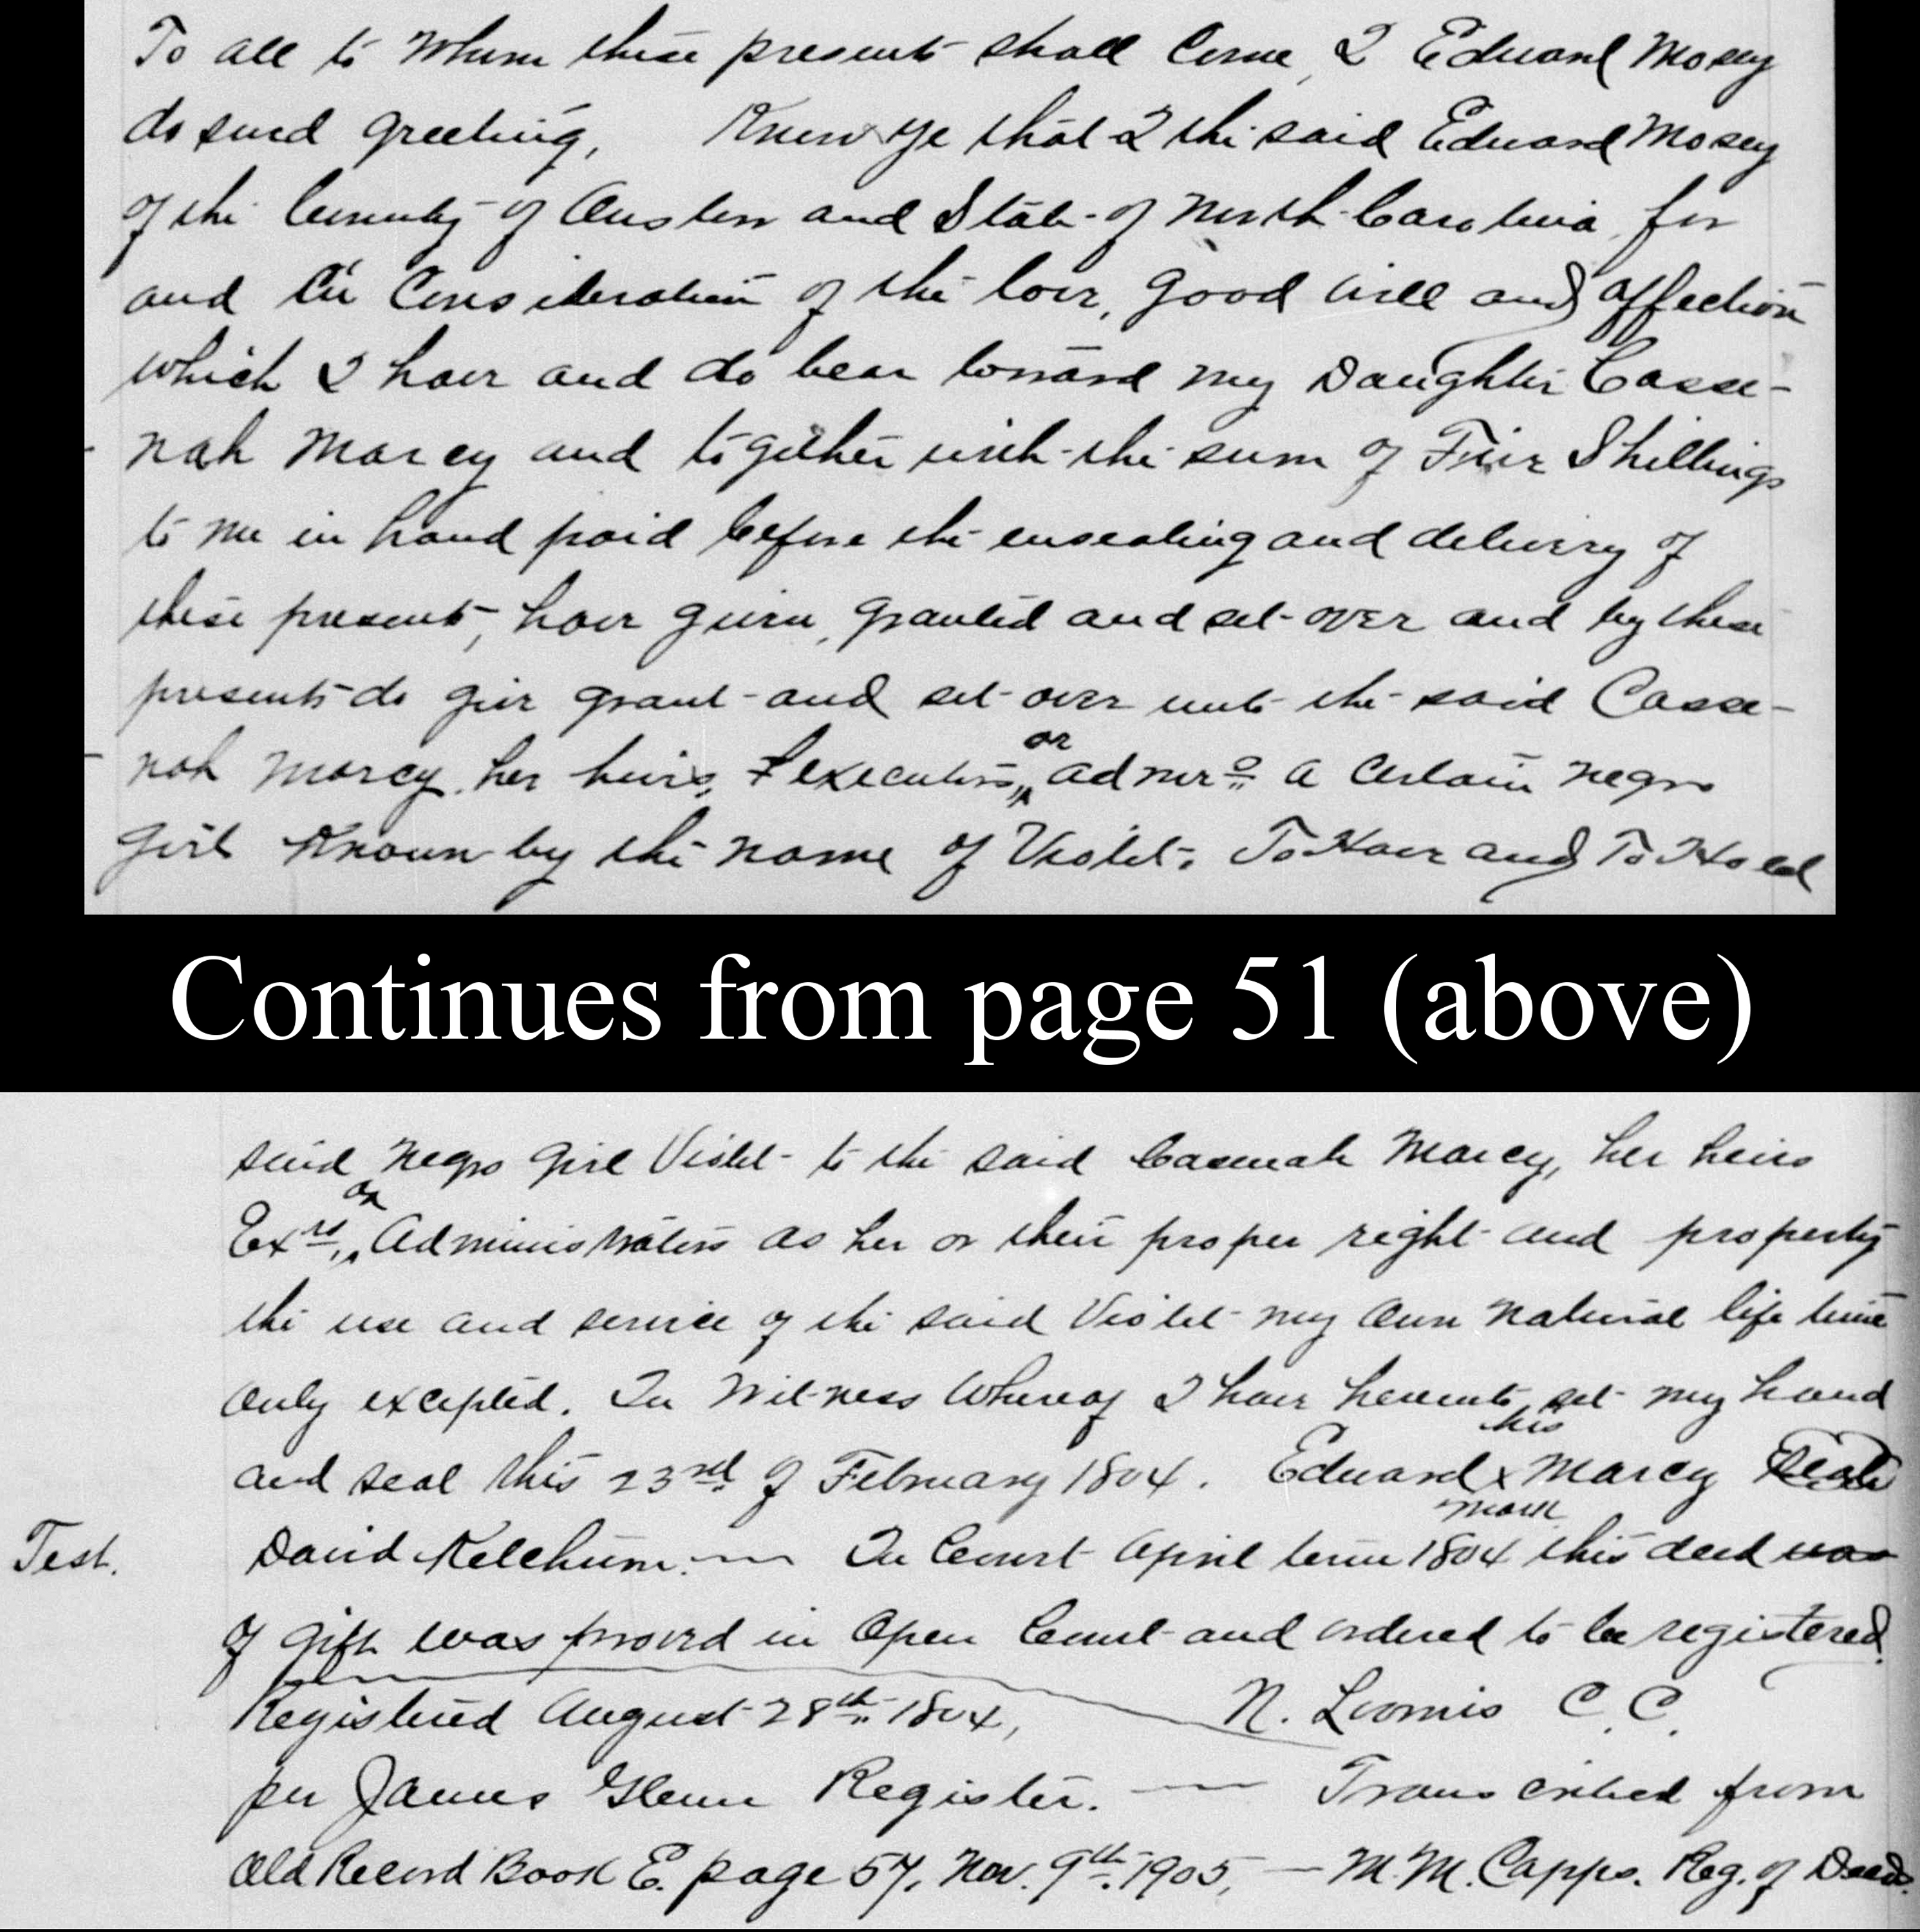 To all to Whom these presents shall Come, I Edward Mosey
do send greeting, Know ye that I the said Edward Mosey
of the County of Auston and State of North Carolina, for
and in Consideration of the love, good will and affection
which I have and do bear toward my Daughter Casse-
nah Marcy and together with the sum of Five Shillings
to me in hand paid before the ensealing and delivery of
these presents, have given, granted and set over and by these
presents do give grant and set over unto the said Casse-
nah Marcy, her heirs, executors, or admrs. a certain negro
girl Known by the name of Violet. To Have and To Hold
Continues from page 51 (above)
said Negro Girl Violet to the said Casenah Marcy, her heirs
Exrs, or Administrators as her or their proper right and property
the use and service of the said Violet my own natural life time
only excepted. In Witness Whereof I have hereunto set my hand
and seal this 23rd of February 1804. Edward his x mark Marcy Seal
Test. David Ketchum. In Court April term 1804 this deed was
of gift was proved in Open Court and ordered to be registered.
Registered August 28th 1804, N. Loomis C.C.
per James Glenn Register. — Transcribed from
Old Record Book E. page 57, Nov. 9th 1905, — M.M. Capps. Reg. of Deeds.